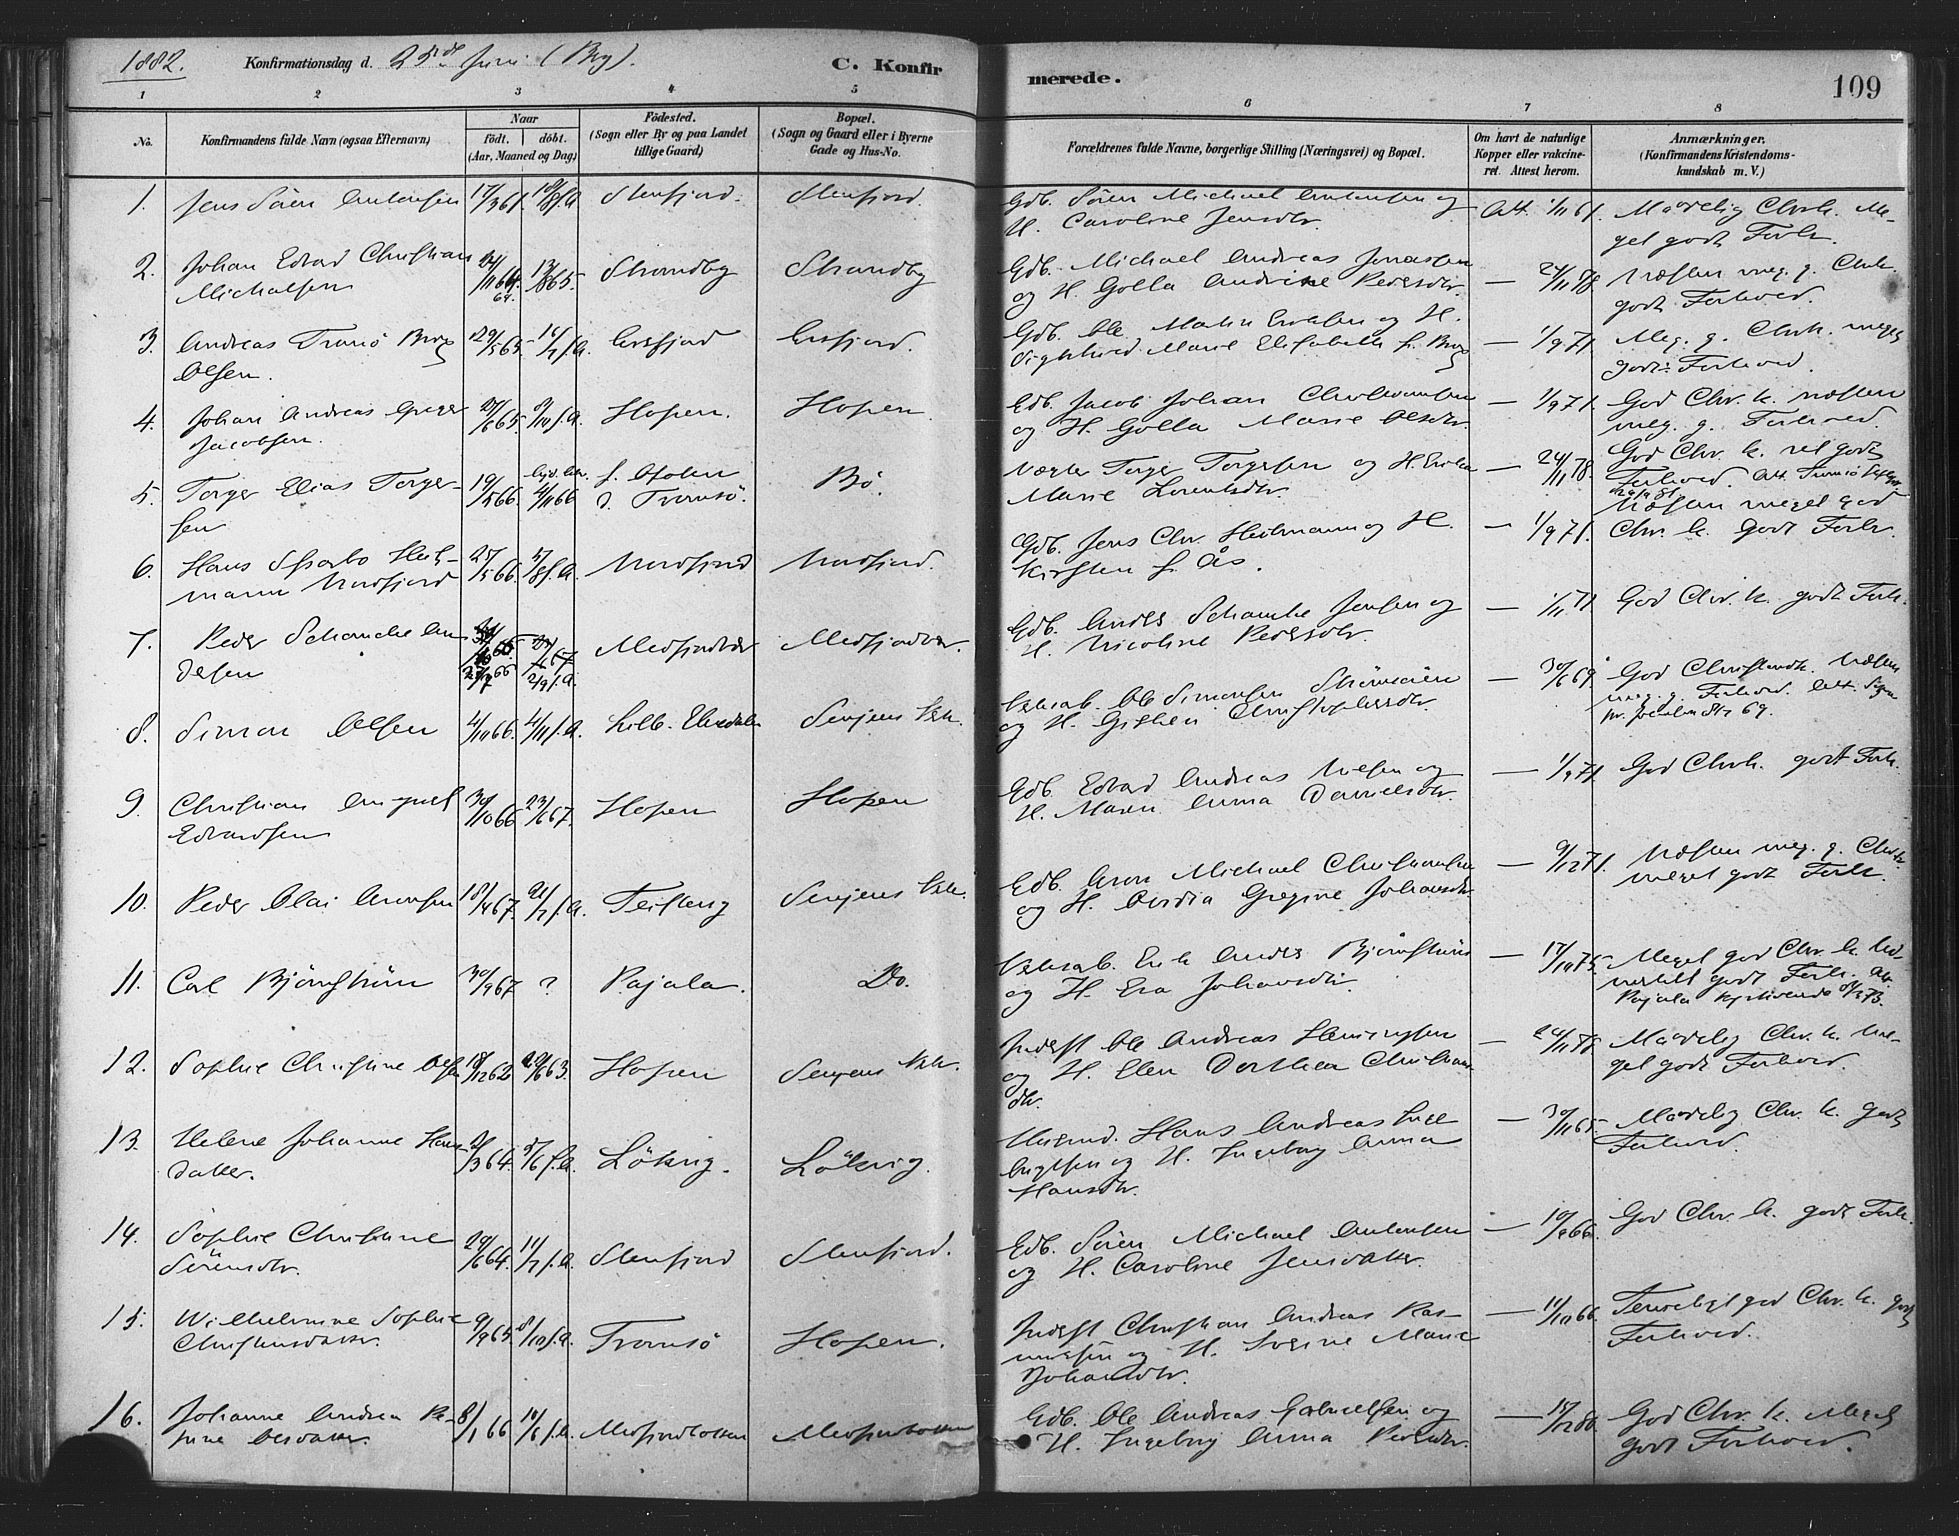 1882. Konfirmationsdag d. 25de Juni (Berg). C. Konfirmerede. 109
1 2 3 4 5 6 7 8
No. Konfirmandens fulde Navn (ogsaa Efternavn) Naar født. døbt. (Aar, Maaned og Dag) Födested. (Sogn eller By og paa Landet tillige Gaard) Bopæl. (Sogn og Gaard eller i Byerne Gade og Hus-No. Forældrenes fulde Navne, borgerlige Stilling (Næringsvei) og Bopæl. Om havt de naturlige Kopper eller vakcineret. Attest herom. Anmærkninger. (Konfirmandens Kristendomskundskab m. V.)
1. Jens Sören Antonsen 17/3 61. Stenfjord. Stenfjord. Gdb. Sören Michael Antonsen og
H. Caroline Jensdtr. Att. 1/11 61. Maadelig Chrk. Meget godt Forh.
2. Johan Edvard Christian
Michalsen 13/8 65. Strandby Strandby Gdb. Michael Andreas Jonassen
og H. Golla Andrine Pedersdtr. — 24/11 78. Næsten meg. g. Chrk.
godt Forhold.
3. Andreas Tromsö Berg
Olsen. 29/5 65. 16/7 s.A. Ersfjord Ersfjord. Gdb. Ole Martin Eriksen og H.
Marie Elisabeth f. Berg — 1/9 71. Meg. g. Chrk. meget
godt Forhold.
4. Johan Andreas Greger
Jacobsen. 27/6 65. 8/10 s.A. Hopen. Hopen. Gdb. Jacob Johan
og H. Golla Marie Olsdtr. — 1/9 71. God Chr. k. næsten
meg. g. Forhold.
5. Torger Elias Torgersen 19/5 66. 4/11 66 f. Ofoten
d. Tromsö. Bö. Vægter Torger Torgersen og H.
Marie Lorentsdtr. — 24/11 78. God Chr. k. ret godt
Forhold. Att. Tromsö
6. Hans Heitmann Nordfjord 25/5 66. 5/8 s.A. Nordfjord Nordfjord. Gdb. Jens Chr. Heitmann og H.
Kirsten f. Ås. — 1/9 71. Næsten meget god
Chr. k. godt Forh.
7. Peder Schanche Andersen 27/7 66 2/9 s.A. Medfjordvær Medfjordvær. Gdb. Anders Schanche Jensen og
H. Nicoline Pedersdtr. — 1/11 71 God Chr. k. godt Forh.
8. Simon Olsen 4/10 66. 4/11 s.A. Lilleh. Elvedalen Senjens Vrk. Vrksarb. Ole Simonsen Strömören
og H. Christophersdtr. — 30/6 69. God Christendk. Næsten
meg. g. Forhold. Att.
9. Christian August
Edvardsen 30/10 66 23/6 67. Hopen Hopen Gdb. Edvard Andreas Olsen og
H. Maren Anna Danielsdtr. — 1/9 71. God Chrk. godt Forh.
10. Peder Olai Aronsen 18/4 67. 21/7 s.A. Teistevig Senjens Vrk. Gdb. Aron Michael Christiansen
og H. Ovidia Gregine Johansdtr. — 9/12 71. Næsten meg. g. Chrk.
meget godt Forh.
11. Carl Björnström 30/9 67 ? Pajala. Do. Vrksarb. Erik Anders Björnström
og H. Eva Johansdtr. — 17/10 75. Meget god Chr. k. Udmerket godt Forh. Att.
Pajala
12. Sophie Christine Olsen 18/12 62 20/6 63. Hopen Senjens Vrk. Inderst Ole Andreas Henningsen
og H. Elen Dorthea Christiansdtr. — 24/11 78. Maadelig Chr. k. Meget godt Forhold.
13. Helene Johanne Hansdatter. 5/6 s.A. Löksvig. Löksvig. Husmd. Hans Andreas Engelbrigtsen og H. Ingeborg Anna
Hansdtr. — 30/11 65. Maadelig Chr. k. godt
Forhold.
14. Sophie Christine
Sörensdtr. 29/6 64. 11/7 s.A. Stenfjord Stenfjord. Gdb. Sören Michael Antonsen
og H. Caroline Jensdatter. — 10/9 66. God Chr. k. godt Forh.
15. Wilhelmine Sophie
Christiansdatter. 9/9 65. 8/10 s.A. Tromsö Hopen. Inderst Christian Andreas Rasmussen og H. Marie
Johansdtr. — 11/10 66. Temmeligt god Chr. k. godt
Forhold.
16. Johanne Andrea Petrine Olsdatter. 8/1 66 10/6 s.A. Medfjordbotten Medfjordbotten Gdb. Ole Andreas Gabrielsen og
H. Ingeborg Anna Pedersdtr. — 15/12 80. God Chr. k. Meget
godt Forhold.